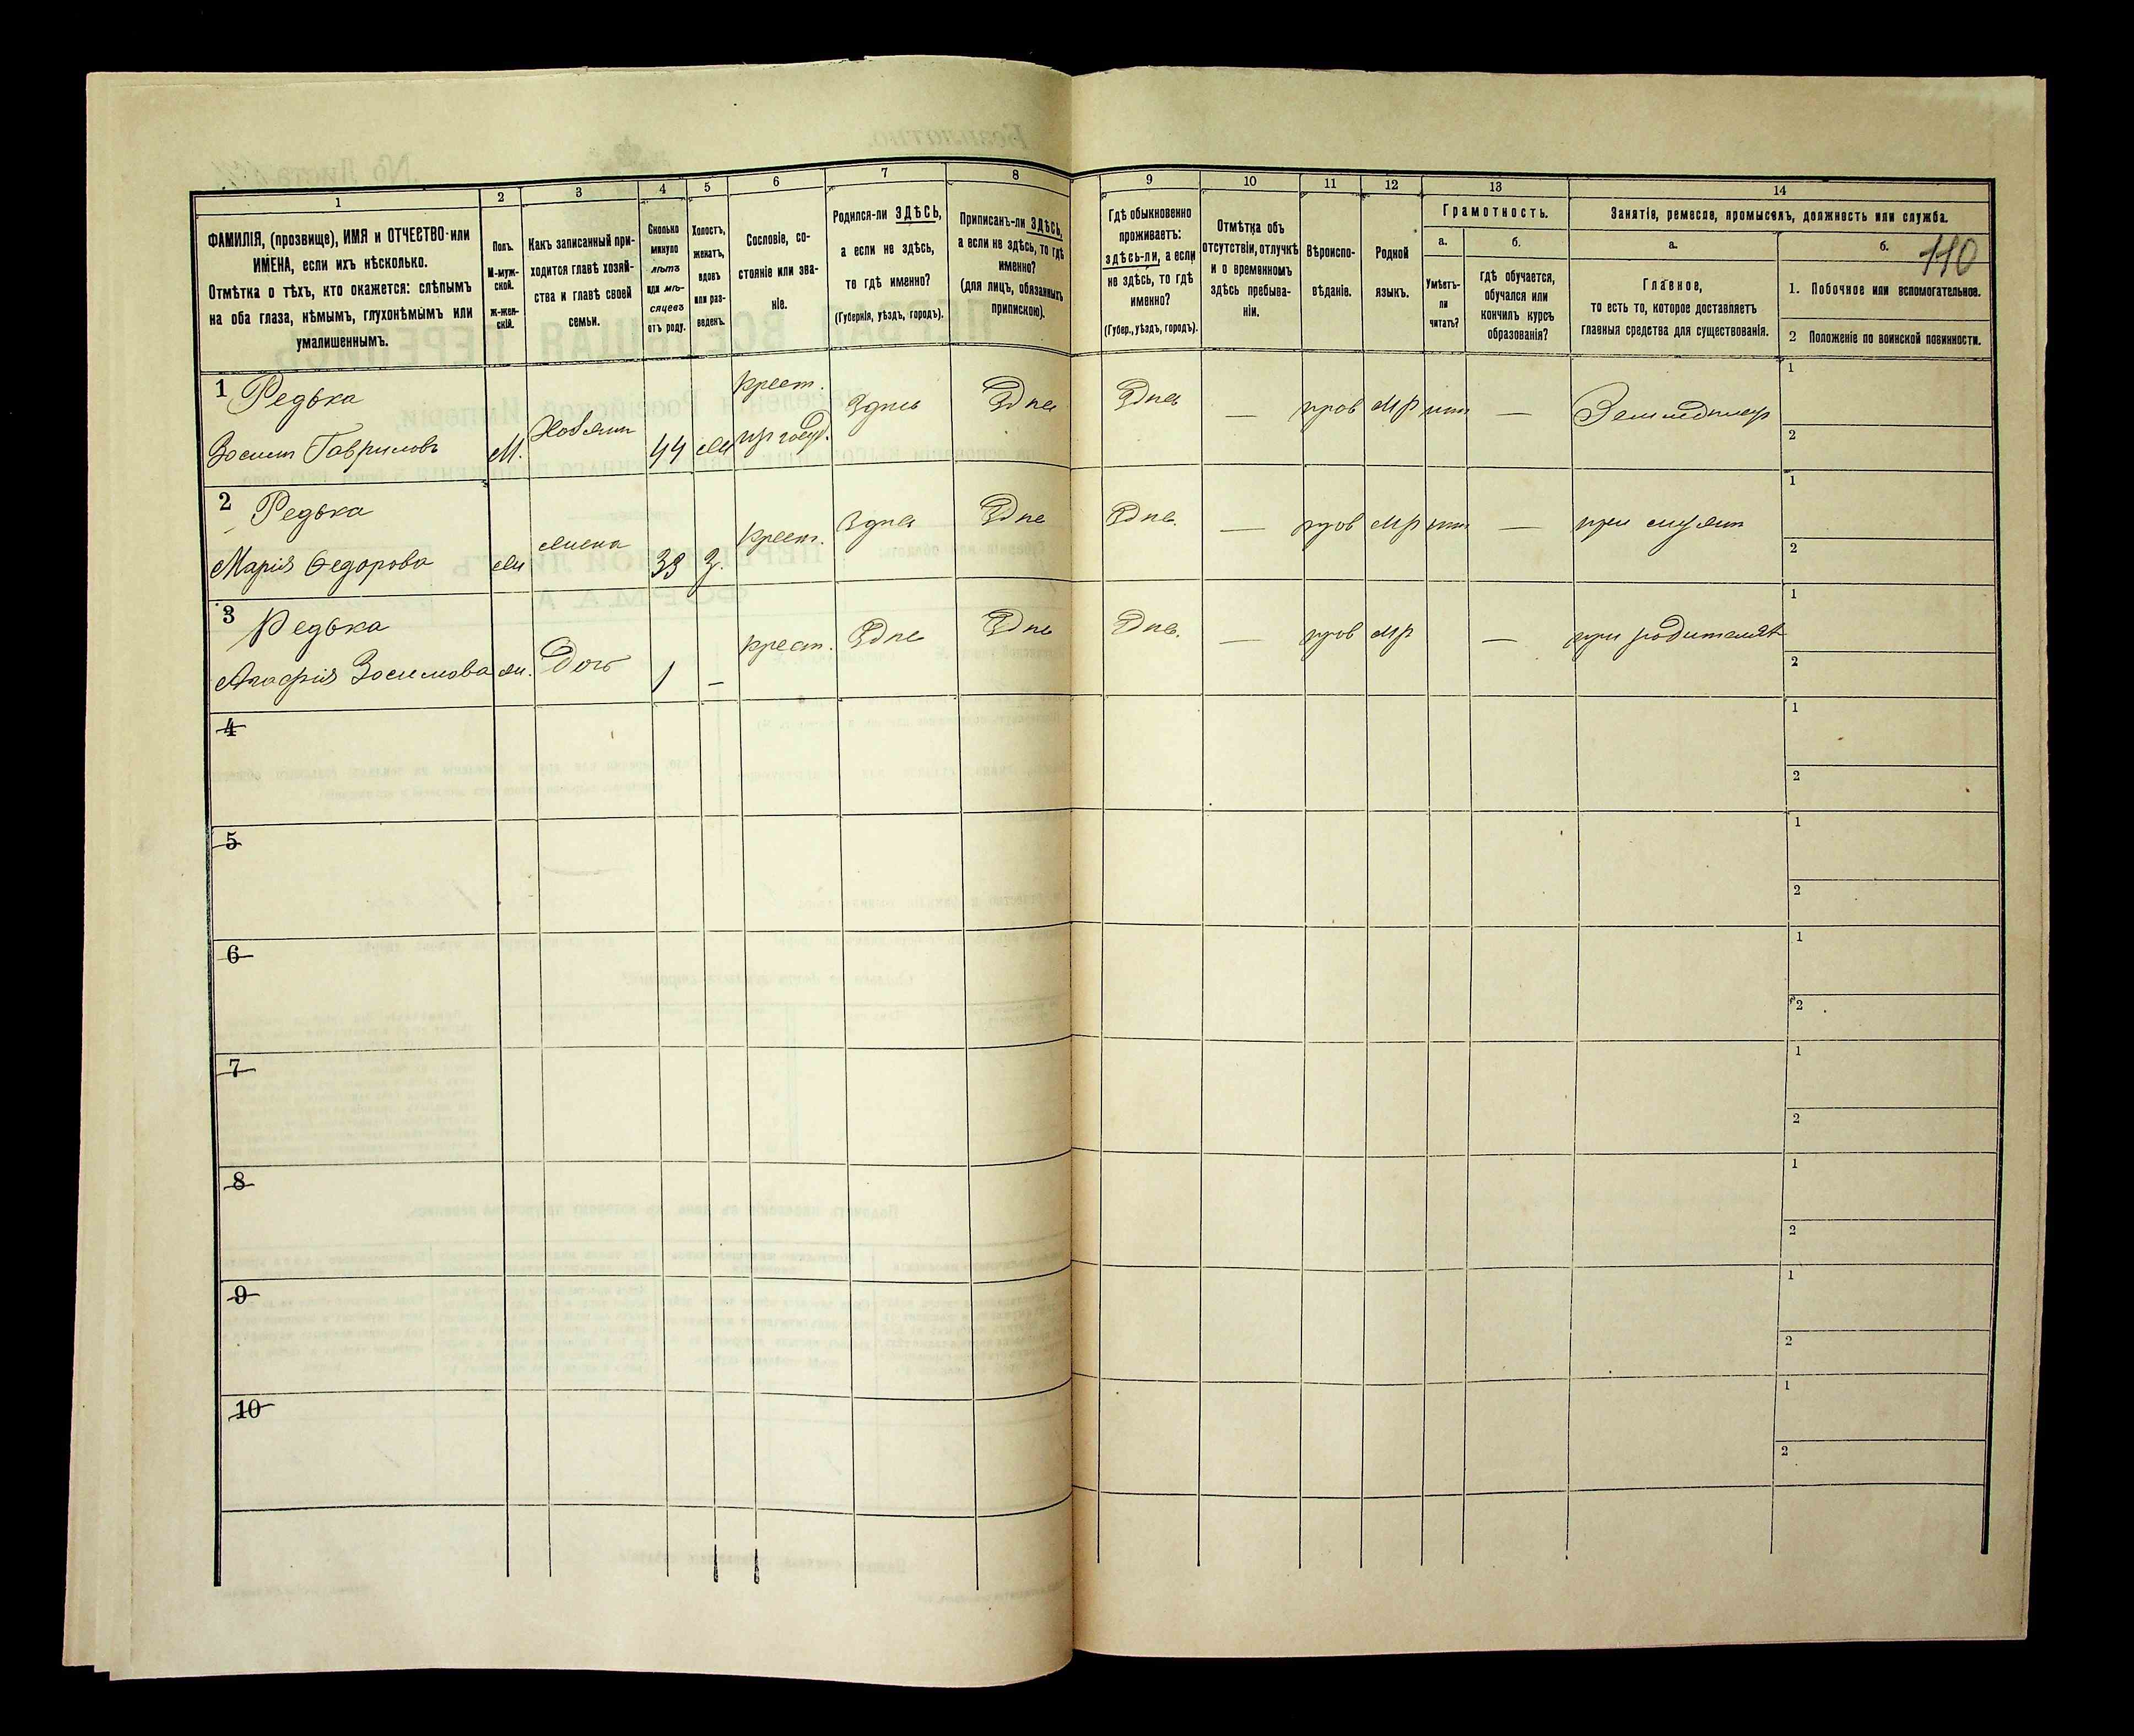 1
2
3
4
5
6
7
8
9
10
11
12
13
14
ФАМИЛІЯ, (прозвище), ИМЯ и ОТЧЕСТВО или
ИМЕНА, если ихъ нѣсколько.
Отмѣтка о тѣхъ, кто окажется: слѣпымъ
на оба глаза, нѣмымъ, глухонѣмымъ или
умалишеннымъ.
Полъ.
М-муж-
ской.
Ж-жен-
скій.
Какъ записанный при-
ходится главѣ хозяй-
ства и главѣ своей
семьи.
Сколько
минуло
лѣтъ
или мѣ-
сяцевъ
отъ роду.
Холостъ,
женатъ,
вдовъ
или раз-
веденъ.
Сословіе, со-
стояніе или зва-
ніе.
Родился-ли ЗДѢСЬ,
а если не здѣсь,
то гдѣ именно?
(Губернія, уѣздъ, городъ).
Приписанъ-ли ЗДѢСЬ,
а если не здѣсь, то гдѣ
именно?
(для лицъ, обязанныхъ
припискою).
Гдѣ обыкновенно
проживаетъ:
здѣсь-ли, а если
не здѣсь, то гдѣ
именно?
(Губер., уѣздъ, городъ).
Отмѣтка объ
отсутствіи, отлучкѣ
и о временномъ
здѣсь пребыва-
ніи.
Вѣроиспо-
вѣданіе.
Родной
языкъ.
Грамотность.
а.
Умѣетъ-
ли
читать?
б.
гдѣ обучается,
обучался или
кончилъ курсъ
образованія?
Занятіе, ремесло, промыселъ, должность или служба.
а.
Главное,
то есть то, которое доставляетъ
главныя средства для существованія.
б.
110
1. Побочное или вспомогательное.
2 Положеніе по воинской повинности.
1 Редька
Зосим Гавриловъ
М.
Хозяин
44
крест.
Здѣсь
Здѣсь
Здѣсь
—
прав
мр
нет
—
1
2
2 Редька
Марія Ѳедорова
жена
З.
крест.
Здѣсь
Здѣсь
Здѣсь
—
прав
мр
нет
—
при муже
1
2
3 Редька
Зосимова
Дочь
1
—
крест.
Здѣсь
Здѣсь
Здѣсь
—
прав
мр
—
при родителях
1
2
4
1
2
5
1
2
6
1
2
7
1
2
8
1
2
9
1
2
10
1
2